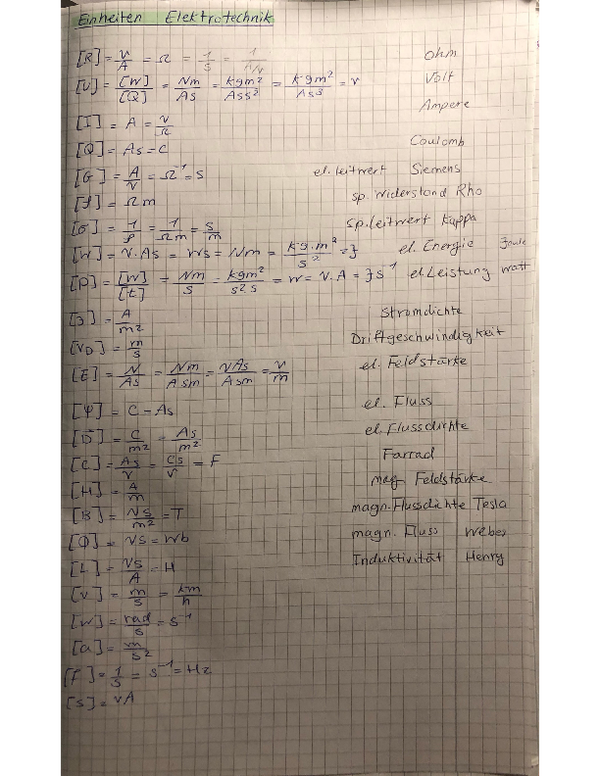 Einheiten Elektrotechnik
[R] = V/A = Ω = 1/S = 1/A/V Ohm
[U] = [W]/[Q] = Nm/As = kgm²/Ass² = kgm²/As³ = V Volt
Ampere
[I] = A = V/Ω
[Q] = As = C Coulomb
[G] = A/V = Ω⁻¹ = S el. Leitwert Siemens
[ρ] = Ωm sp. Widerstand Rho
[σ] = 1/ρ = 1/Ωm = S/m sp. Leitwert Kappa
[W] = V·As = Ws = Nm = kg·m²/s² = J el. Energie Joule
[P] = [W]/[t] = Nm/s = kgm²/s²s = W = V·A = Js⁻¹ el. Leistung Watt
[J] = A/m² Stromdichte
[v_D] = m/s Driftgeschwindigkeit
[E] = N/As = Nm/Asm = VAs/Asm = V/m el. Feldstärke
[Ψ] = C = As el. Fluss
[D] = C/m² = As/m² el. Flussdichte
[C] = As/V = Cs/V = F Farrad
[H] = A/m mag. Feldstärke
[B] = Vs/m² = T magn. Flussdichte Tesla
[Φ] = Vs = Wb magn. Fluss Weber
[L] = Vs/A = H Induktivität Henry
[v] = m/s = km/h
[ω] = rad/s = s⁻¹
[a] = m/s²
[f] = 1/s = s⁻¹ = Hz
[S] = VA